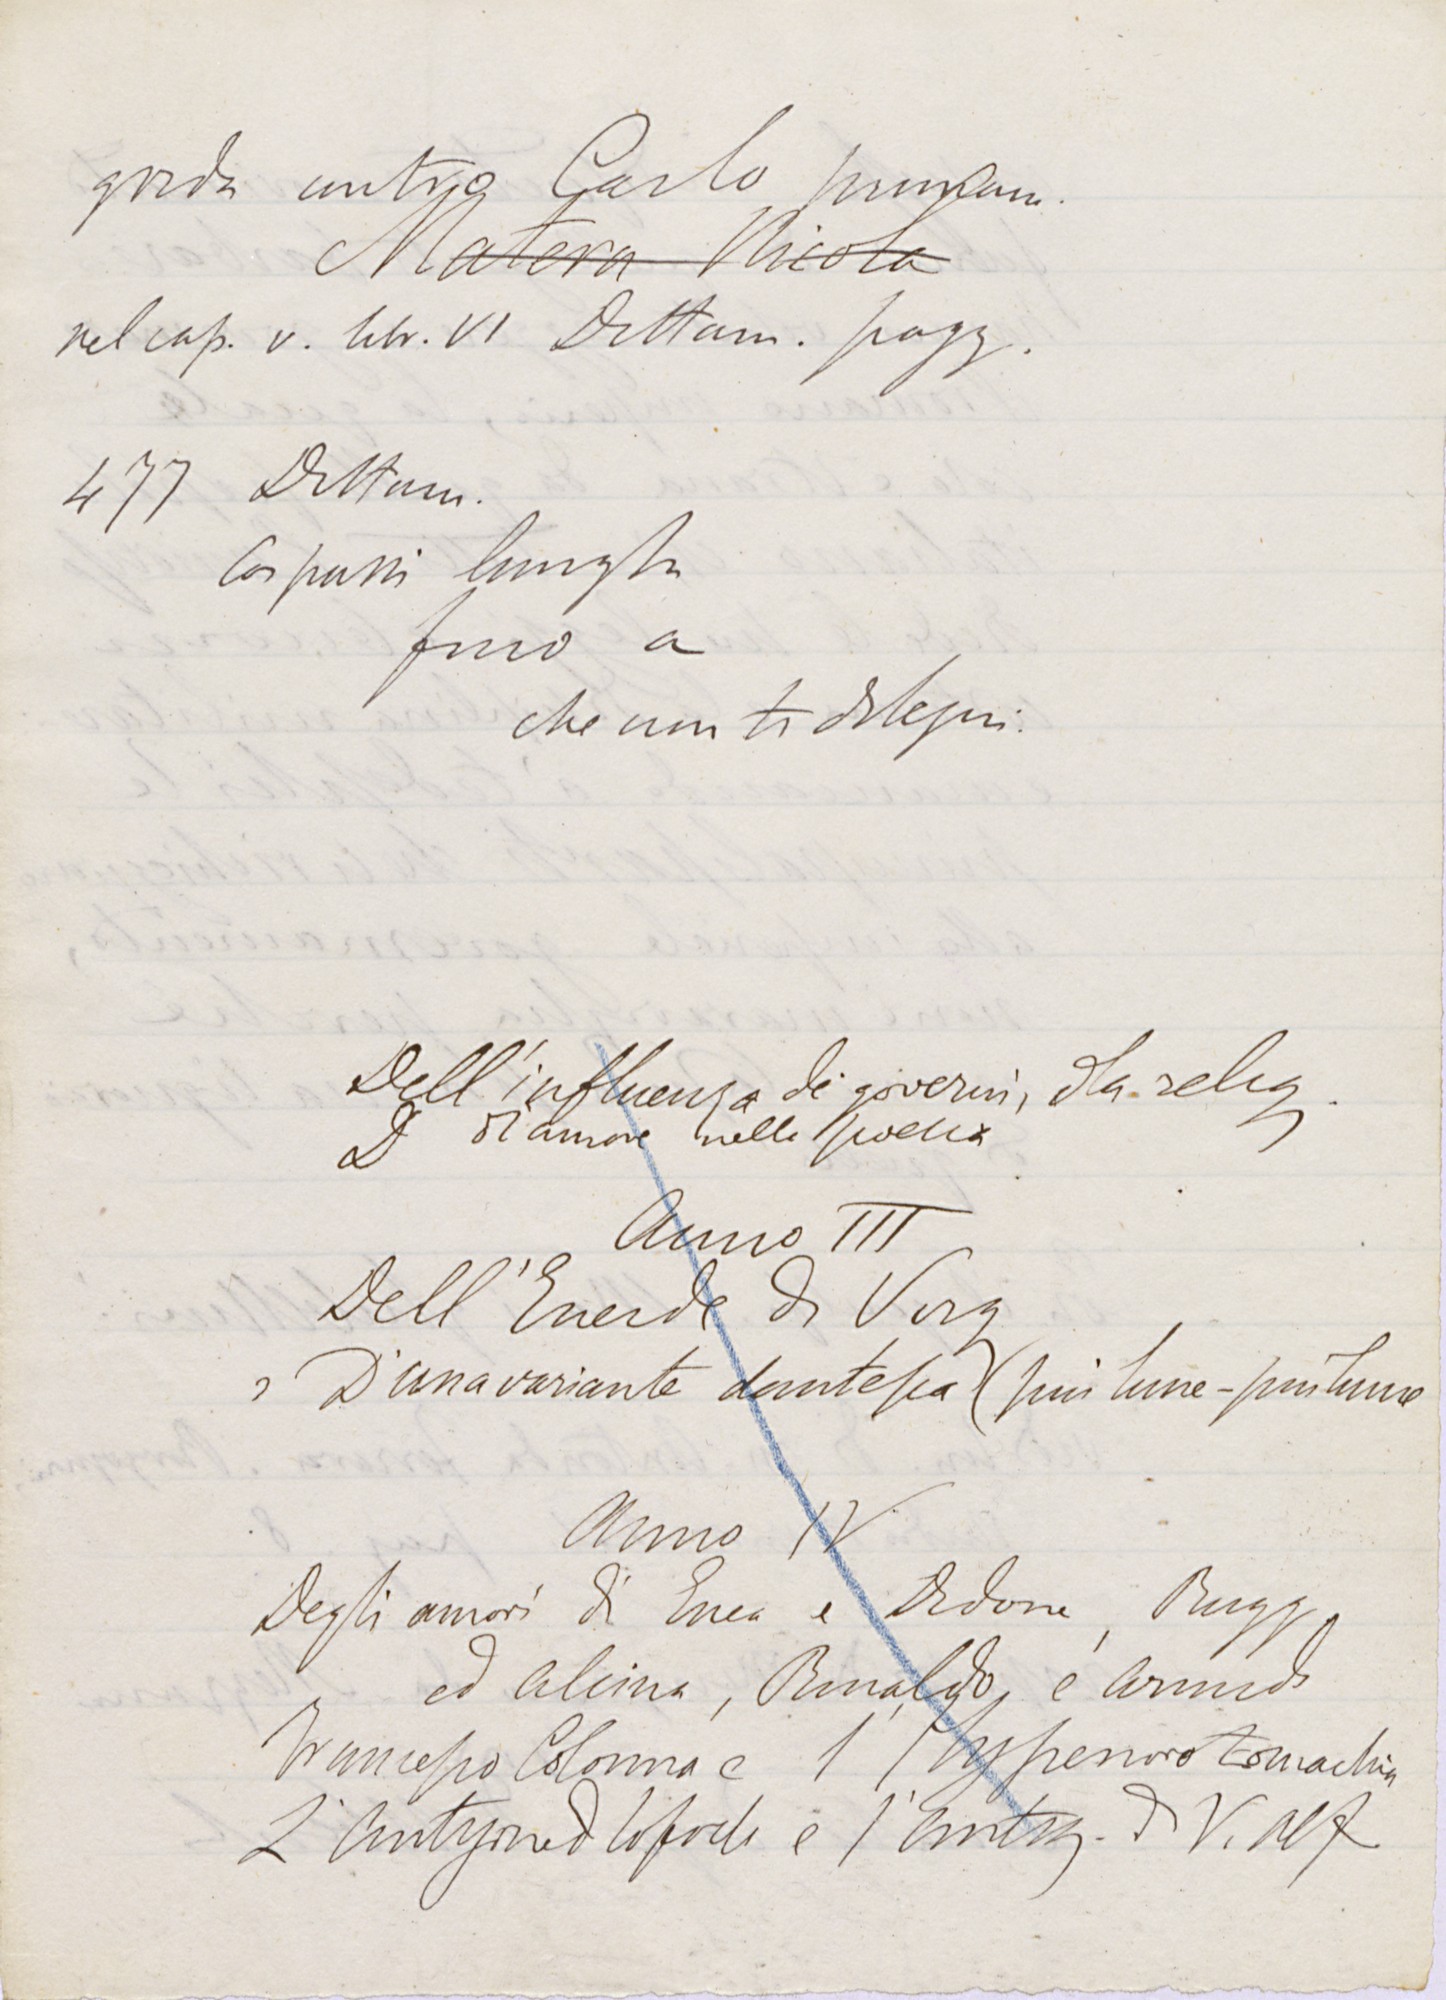 grida contro Carlo
Matera Nicola
nel cap. V. libr. VI Dittam. pagg.
477 Dittam.
Coi passi lunghi
fino a
che non ti dilegui.
Dell'influenza de' governi, d. la relig.
D d'amore nella poesia
Anno III
Dell'Eneide di Virg
D'una variante dantesca (più lune - più lume
Anno IV
Degli amori di Enea e Didone, Rugg
ed Alcina, Rinaldo e Armida
Francesco Colonna e l'Hypnerotomachia
L'Antigone di Sofocle e l'Antig. di V. Alf